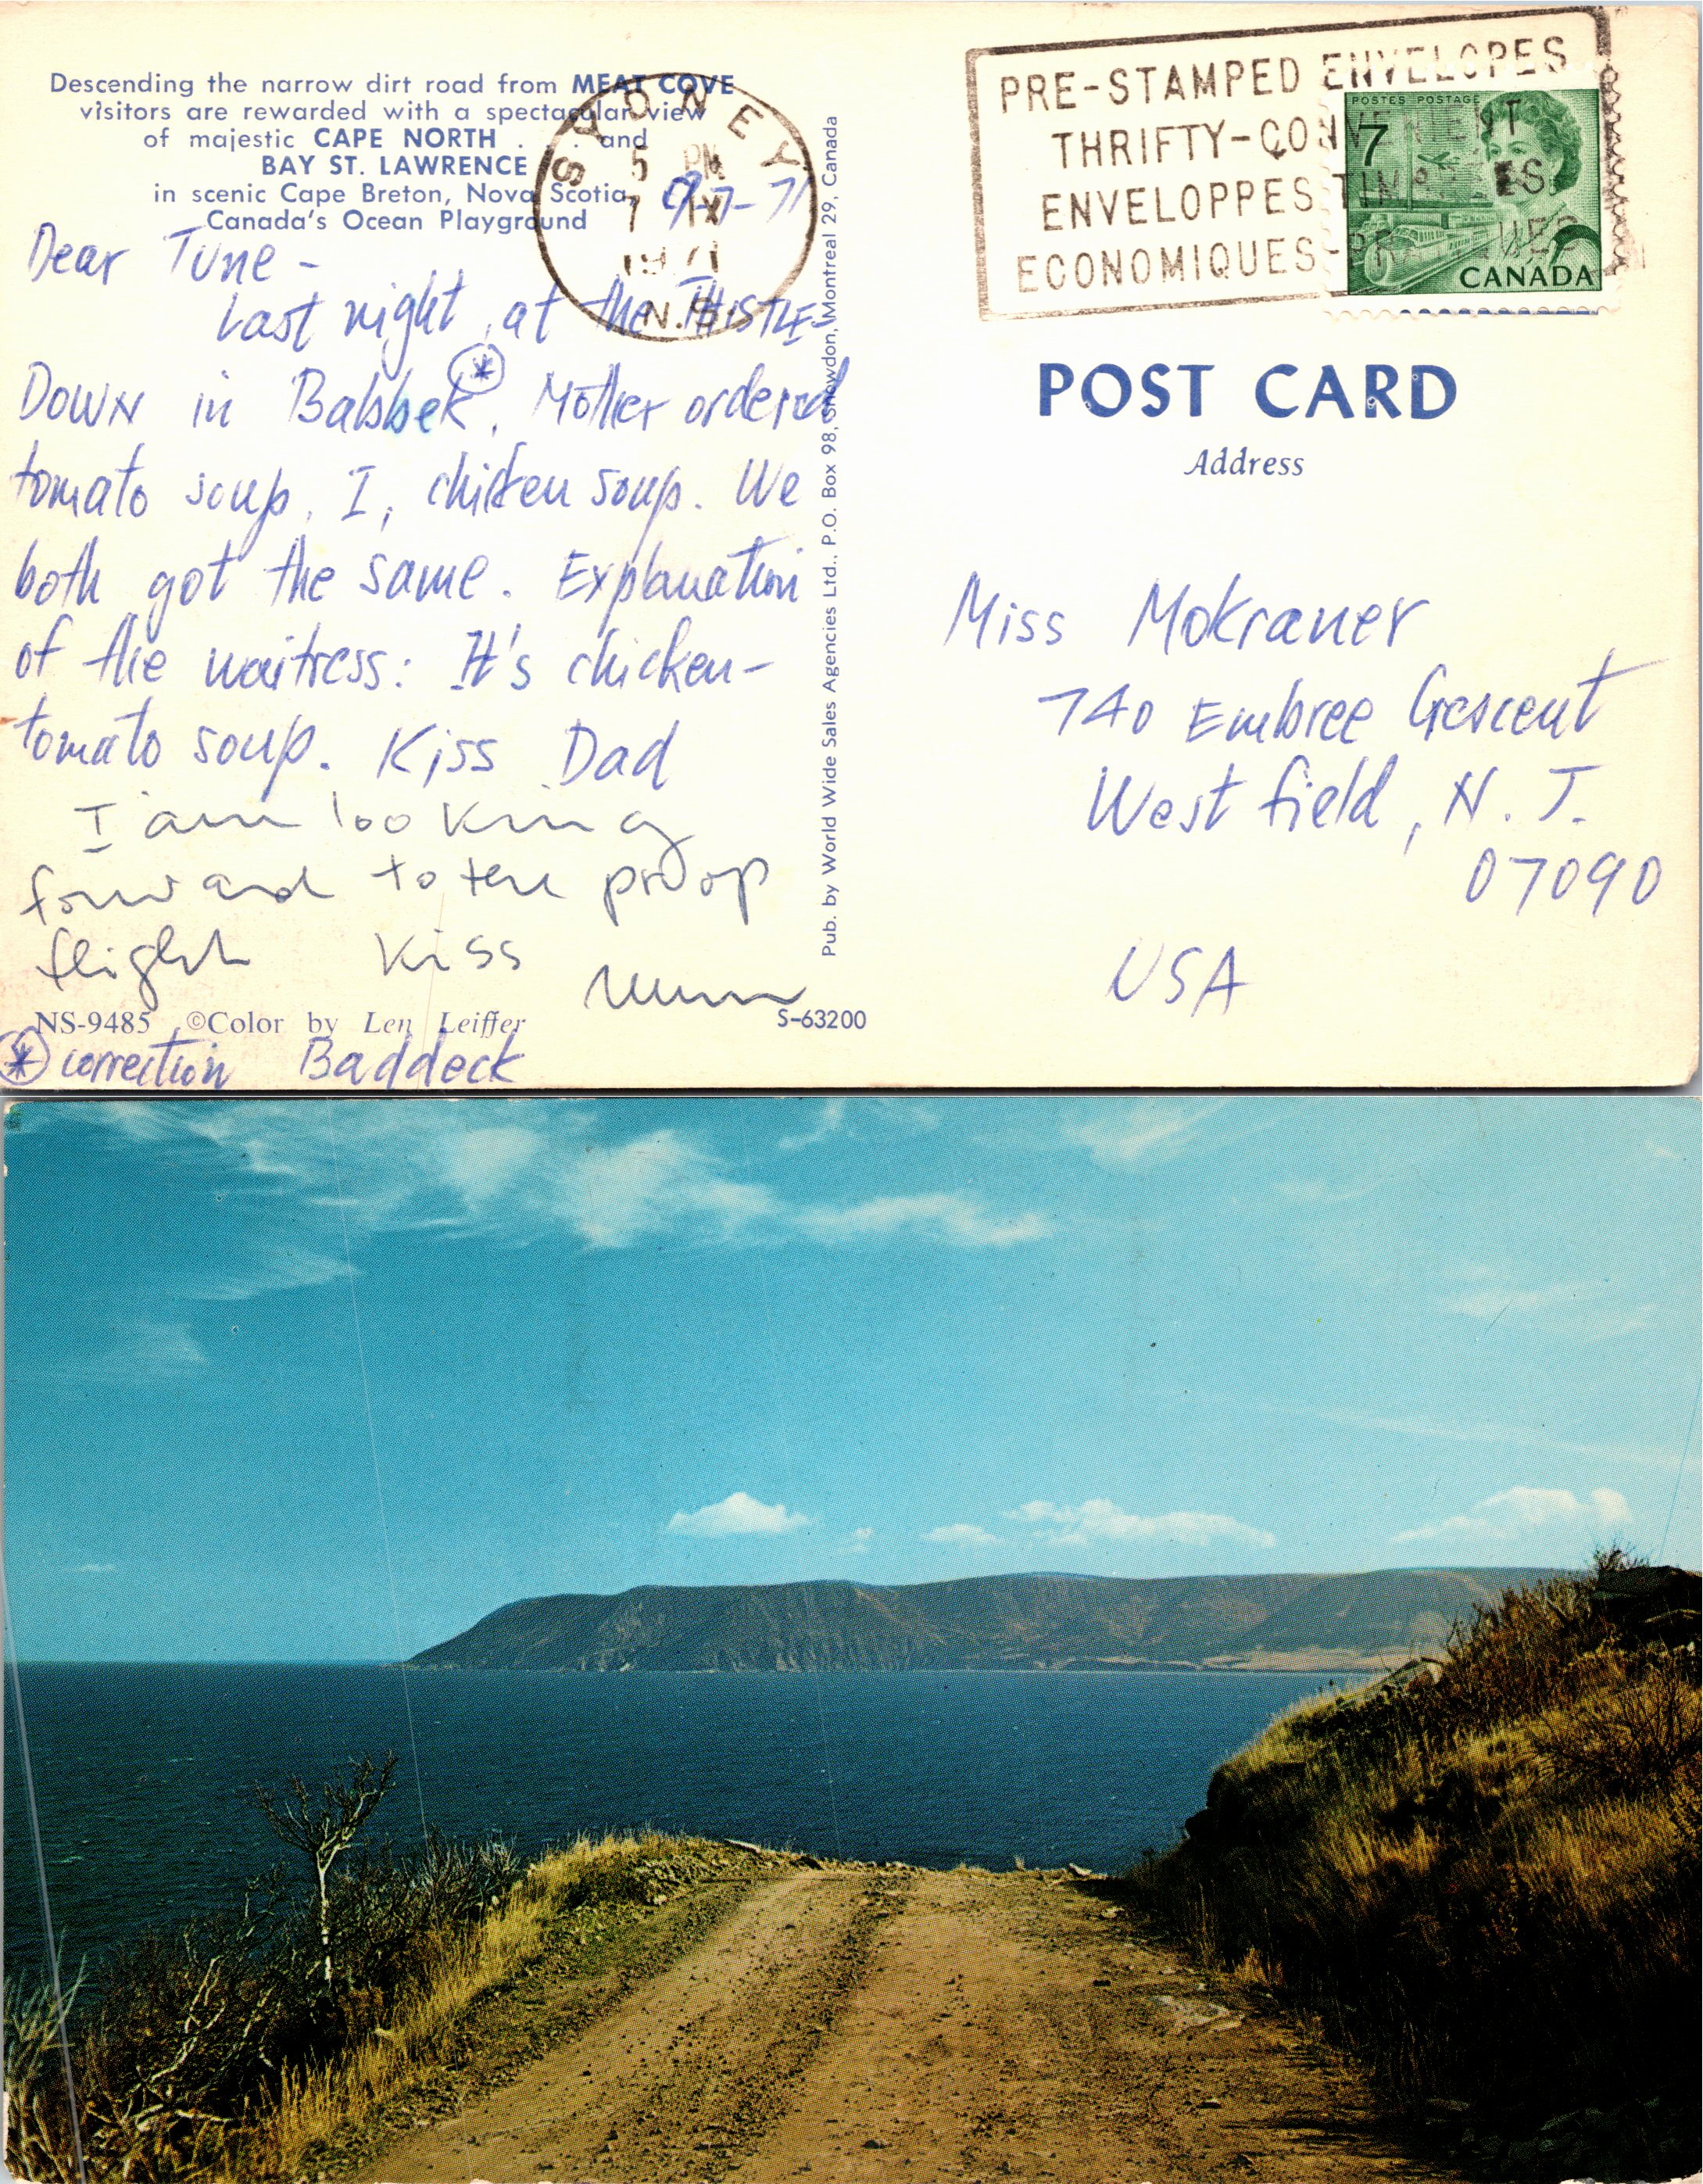 Descending the narrow dirt road from MEAT COVE
visitors are rewarded with a spectacular view
of majestic CAPE NORTH . . . and
BAY ST. LAWRENCE
in scenic Cape Breton, Nova Scotia,
Canada's Ocean Playground
SYDNEY
5 PM
7 IX
1971
N.S.
9-7-71
Dear June -
Last night, at the THISTLE-
DOWN in Balsbek, Mother ordered
tomato soup, I, chicken soup. We
both got the same. Explanation
of the waitress: It's chicken-
tomato soup. Kiss Dad
I am looking
forward to the prop
flight Kiss
Mum
NS-9485 ©Color by Len Leiffer
S-63200
* correction Baddeck
Pub. by World Wide Sales Agencies Ltd., P.O. Box 98, Snowdon, Montreal 29, Canada
PRE-STAMPED ENVELOPES
THRIFTY-CONVENIENT
ENVELOPPES TIMBREES
ECONOMIQUES-PRATIQUES
POSTES POSTAGE
7
CANADA
POST CARD
Address
Miss Mokrauer
740 Embree Crescent
Westfield, N. J.
07090
USA